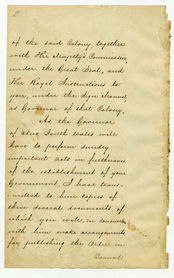 of the said Colony, together
with Her Majesty's Commission,
under the Great Seal, and
Her Royal Instructions to
you, under the Sign Manual,
as Governor of that Colony.
As the Governor
of New South Wales will
have to perform sundry
important acts in furtherance
of the establishment of your
Government, I have trans-
mitted to him copies of
these several documents of
which you will, in concert
with him make arrangements
for publishing the Order in
Council